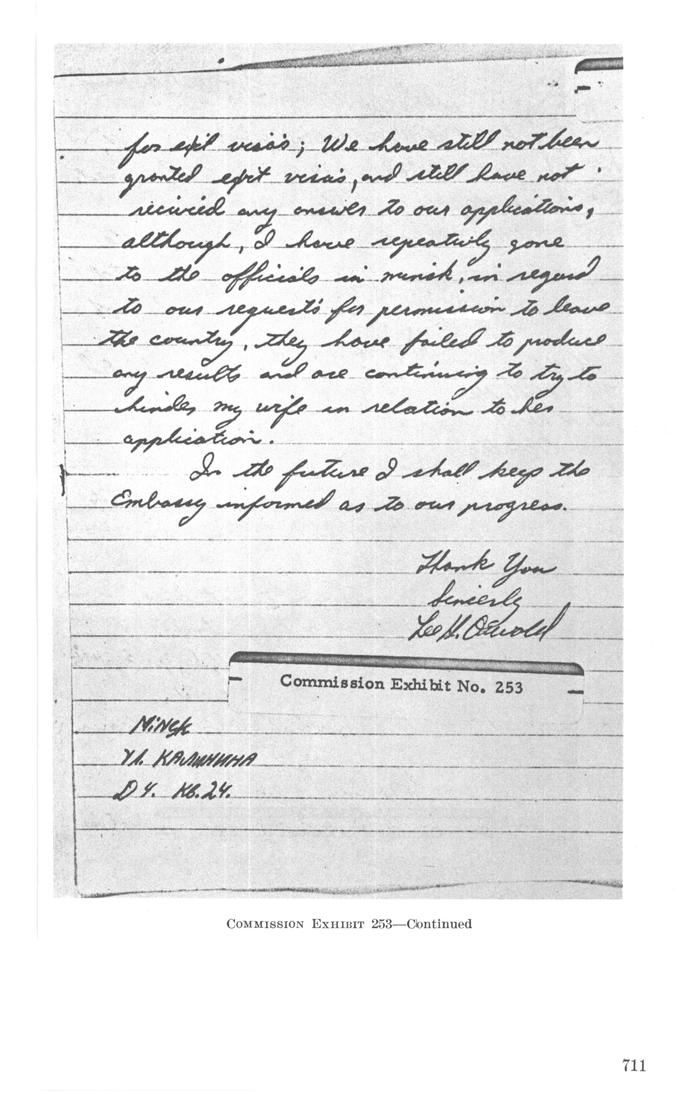 for exit visas; We have still not been
granted exit visas, and still have not
recivied any answer to our applications,
although, I have repeatively gone
to the officials in minsk, in regard
to our request's for permission to leave
the country, they have failed to produce
any results and are continuing to try to
hinder my wife in relation to her
application.
In the future I shall keep the
Embassy informed as to our progress.
Thank You
Sincerly
Lee H. Oswald
Commission Exhibit No. 253
Minsk
Ул. КАЛИНИНА
Д 4. КВ. 24.
COMMISSION EXHIBIT 253—Continued
711